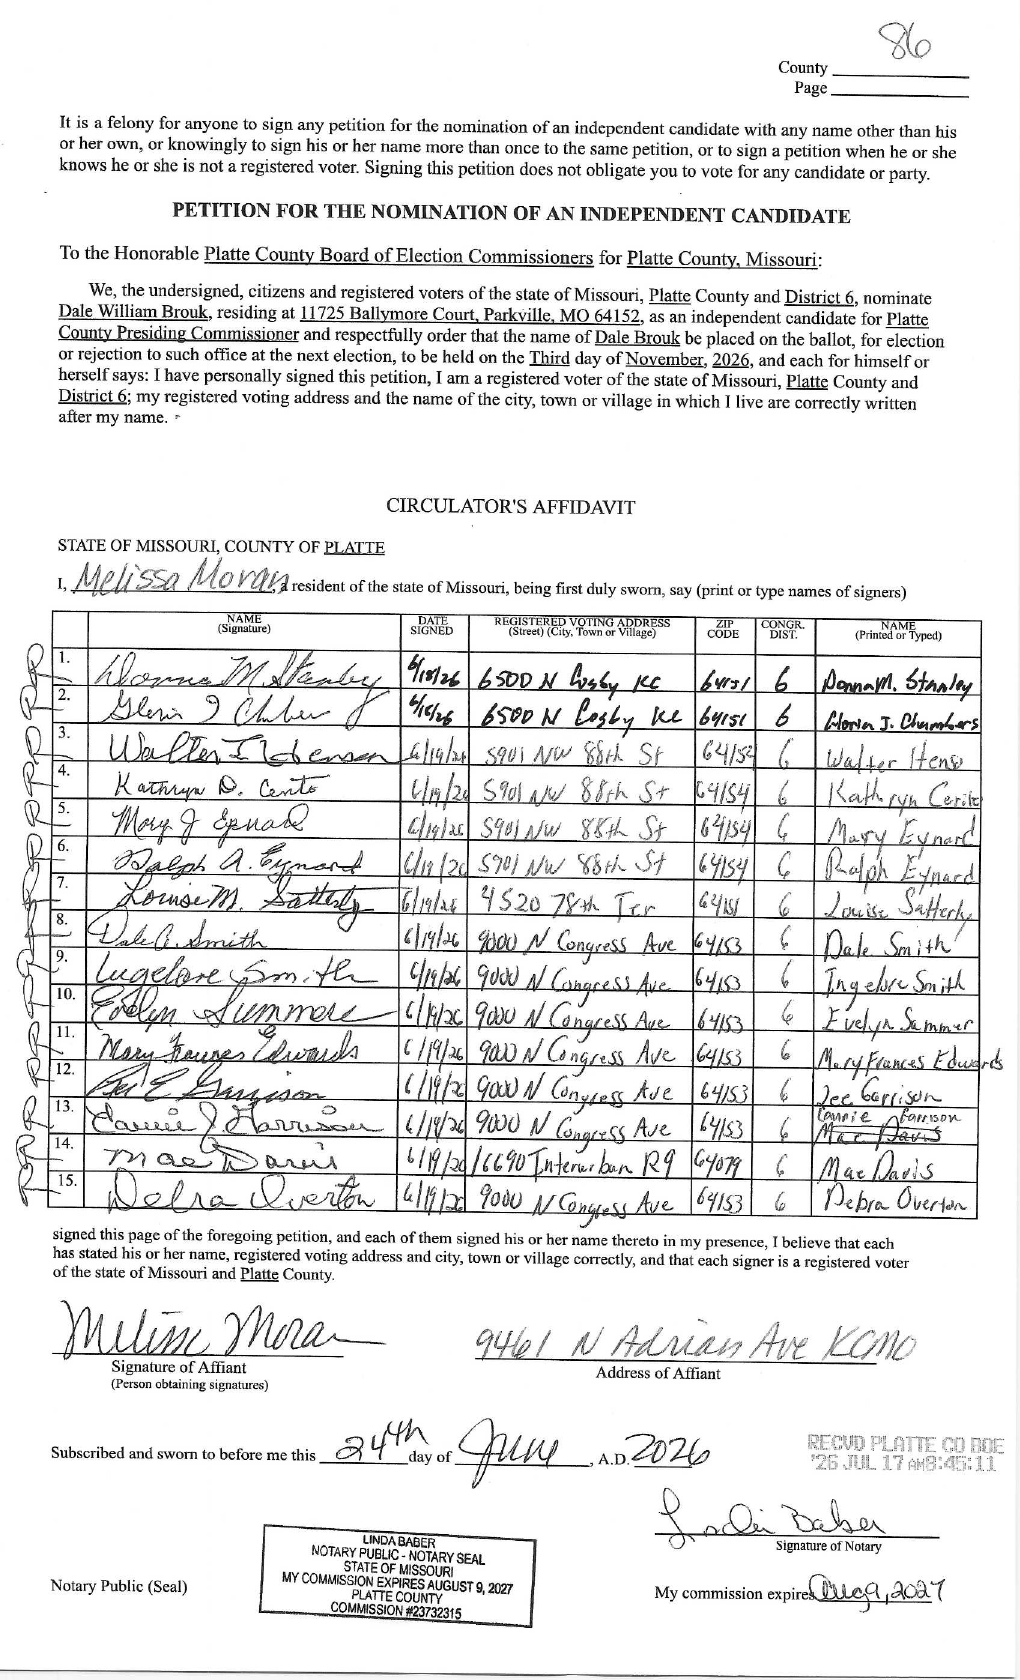 86
County
Page
It is a felony for anyone to sign any petition for the nomination of an independent candidate with any name other than his
or her own, or knowingly to sign his or her name more than once to the same petition, or to sign a petition when he or she
knows he or she is not a registered voter. Signing this petition does not obligate you to vote for any candidate or party.
PETITION FOR THE NOMINATION OF AN INDEPENDENT CANDIDATE
To the Honorable Platte County Board of Election Commissioners for Platte County, Missouri:
We, the undersigned, citizens and registered voters of the state of Missouri, Platte County and District 6, nominate
Dale William Brouk, residing at 11725 Ballymore Court, Parkville, MO 64152, as an independent candidate for Platte
County Presiding Commissioner and respectfully order that the name of Dale Brouk be placed on the ballot, for election
or rejection to such office at the next election, to be held on the Third day of November, 2026, and each for himself or
herself says: I have personally signed this petition, I am a registered voter of the state of Missouri, Platte County and
District 6; my registered voting address and the name of the city, town or village in which I live are correctly written
after my name.
CIRCULATOR'S AFFIDAVIT
STATE OF MISSOURI, COUNTY OF PLATTE
I, Melissa Moran, a resident of the state of Missouri, being first duly sworn, say (print or type names of signers)
NAME (Signature) DATE SIGNED REGISTERED VOTING ADDRESS (Street) (City, Town or Village) ZIP CODE CONGR. DIST. NAME (Printed or Typed)
R 1. Donna M. Stanley 6/15/26 6500 N Cosby KC 64151 6 Donna M. Stanley
R 2. Gloria J Chambers 6/15/26 6500 N Cosby KC 64151 6 Gloria J. Chambers
R 3. Walter 6/19/26 5901 NW 88th St 64154 6 Walter
R 4. Kathryn D. Cento 6/19/26 5901 NW 88th St 64154 6 Kathryn
R 5. Mary J Eynard 6/19/26 5901 NW 88th St 64154 6 Mary Eynard
R 6. Ralph A. Eynard 6/19/26 5901 NW 88th St 64154 6 Ralph Eynard
R 7. Louise M. Satterly 6/19/26 4520 78th Ter 64151 6 Louise Satterly
R 8. Dale A. Smith 6/19/26 9000 N Congress Ave 64153 6 Dale Smith
R 9. Ingelore Smith 6/19/26 9000 N Congress Ave 64153 6 Ingelore Smith
R 10. Evelyn Summers 6/19/26 9000 N Congress Ave 64153 6 Evelyn Summer
R 11. Mary Frances Edwards 6/19/26 9000 N Congress Ave 64153 6 Mary Frances Edwards
R 12. E Garrison 6/19/26 9000 N Congress Ave 64153 6 Garrison
R 13. J Garrison 6/19/26 9000 N Congress Ave 64153 6 Connie Garrison Mac Davis
R 14. Mae Davis 6/19/26 16690 Interurban Rd 64079 6 Mae Davis
R 15. Debra Overton 6/19/26 9000 N Congress Ave 64153 6 Debra Overton
signed this page of the foregoing petition, and each of them signed his or her name thereto in my presence, I believe that each
has stated his or her name, registered voting address and city, town or village correctly, and that each signer is a registered voter
of the state of Missouri and Platte County.
Melissa Moran 9461 N Adrian Ave KCMO
Signature of Affiant Address of Affiant
(Person obtaining signatures)
Subscribed and sworn to before me this 24th day of June, A.D. 2026
RECVD PLATTE CO BOE
'26 JUL 17 AM8:45:11
Linda Baber
Signature of Notary
LINDA BABER
NOTARY PUBLIC - NOTARY SEAL
STATE OF MISSOURI
MY COMMISSION EXPIRES AUGUST 9, 2027
PLATTE COUNTY
COMMISSION #23732315
Notary Public (Seal)
My commission expires Aug 9, 2027